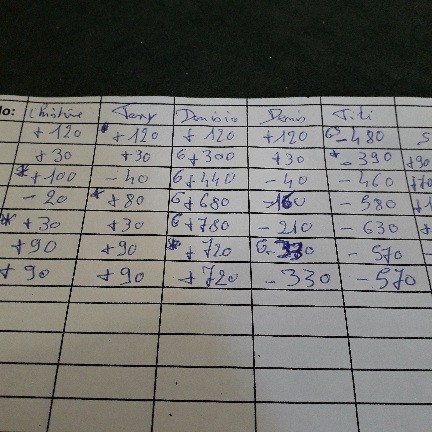 lo: Christine Tony Denisio Denis Titi
+120 * +120 + 120 +120 G - 480 5
+30 +30 G + 300 +30 * - 390 +90
* +100 - 40 G + 440 - 40 - 460 +70
- 20 * +80 G + 680 - 160 - 580 +1
* +30 +30 G + 780 - 210 - 630 +
+90 +90 * + 720 G - 330 - 570 -
+ 90 +90 + 720 - 330 - 570